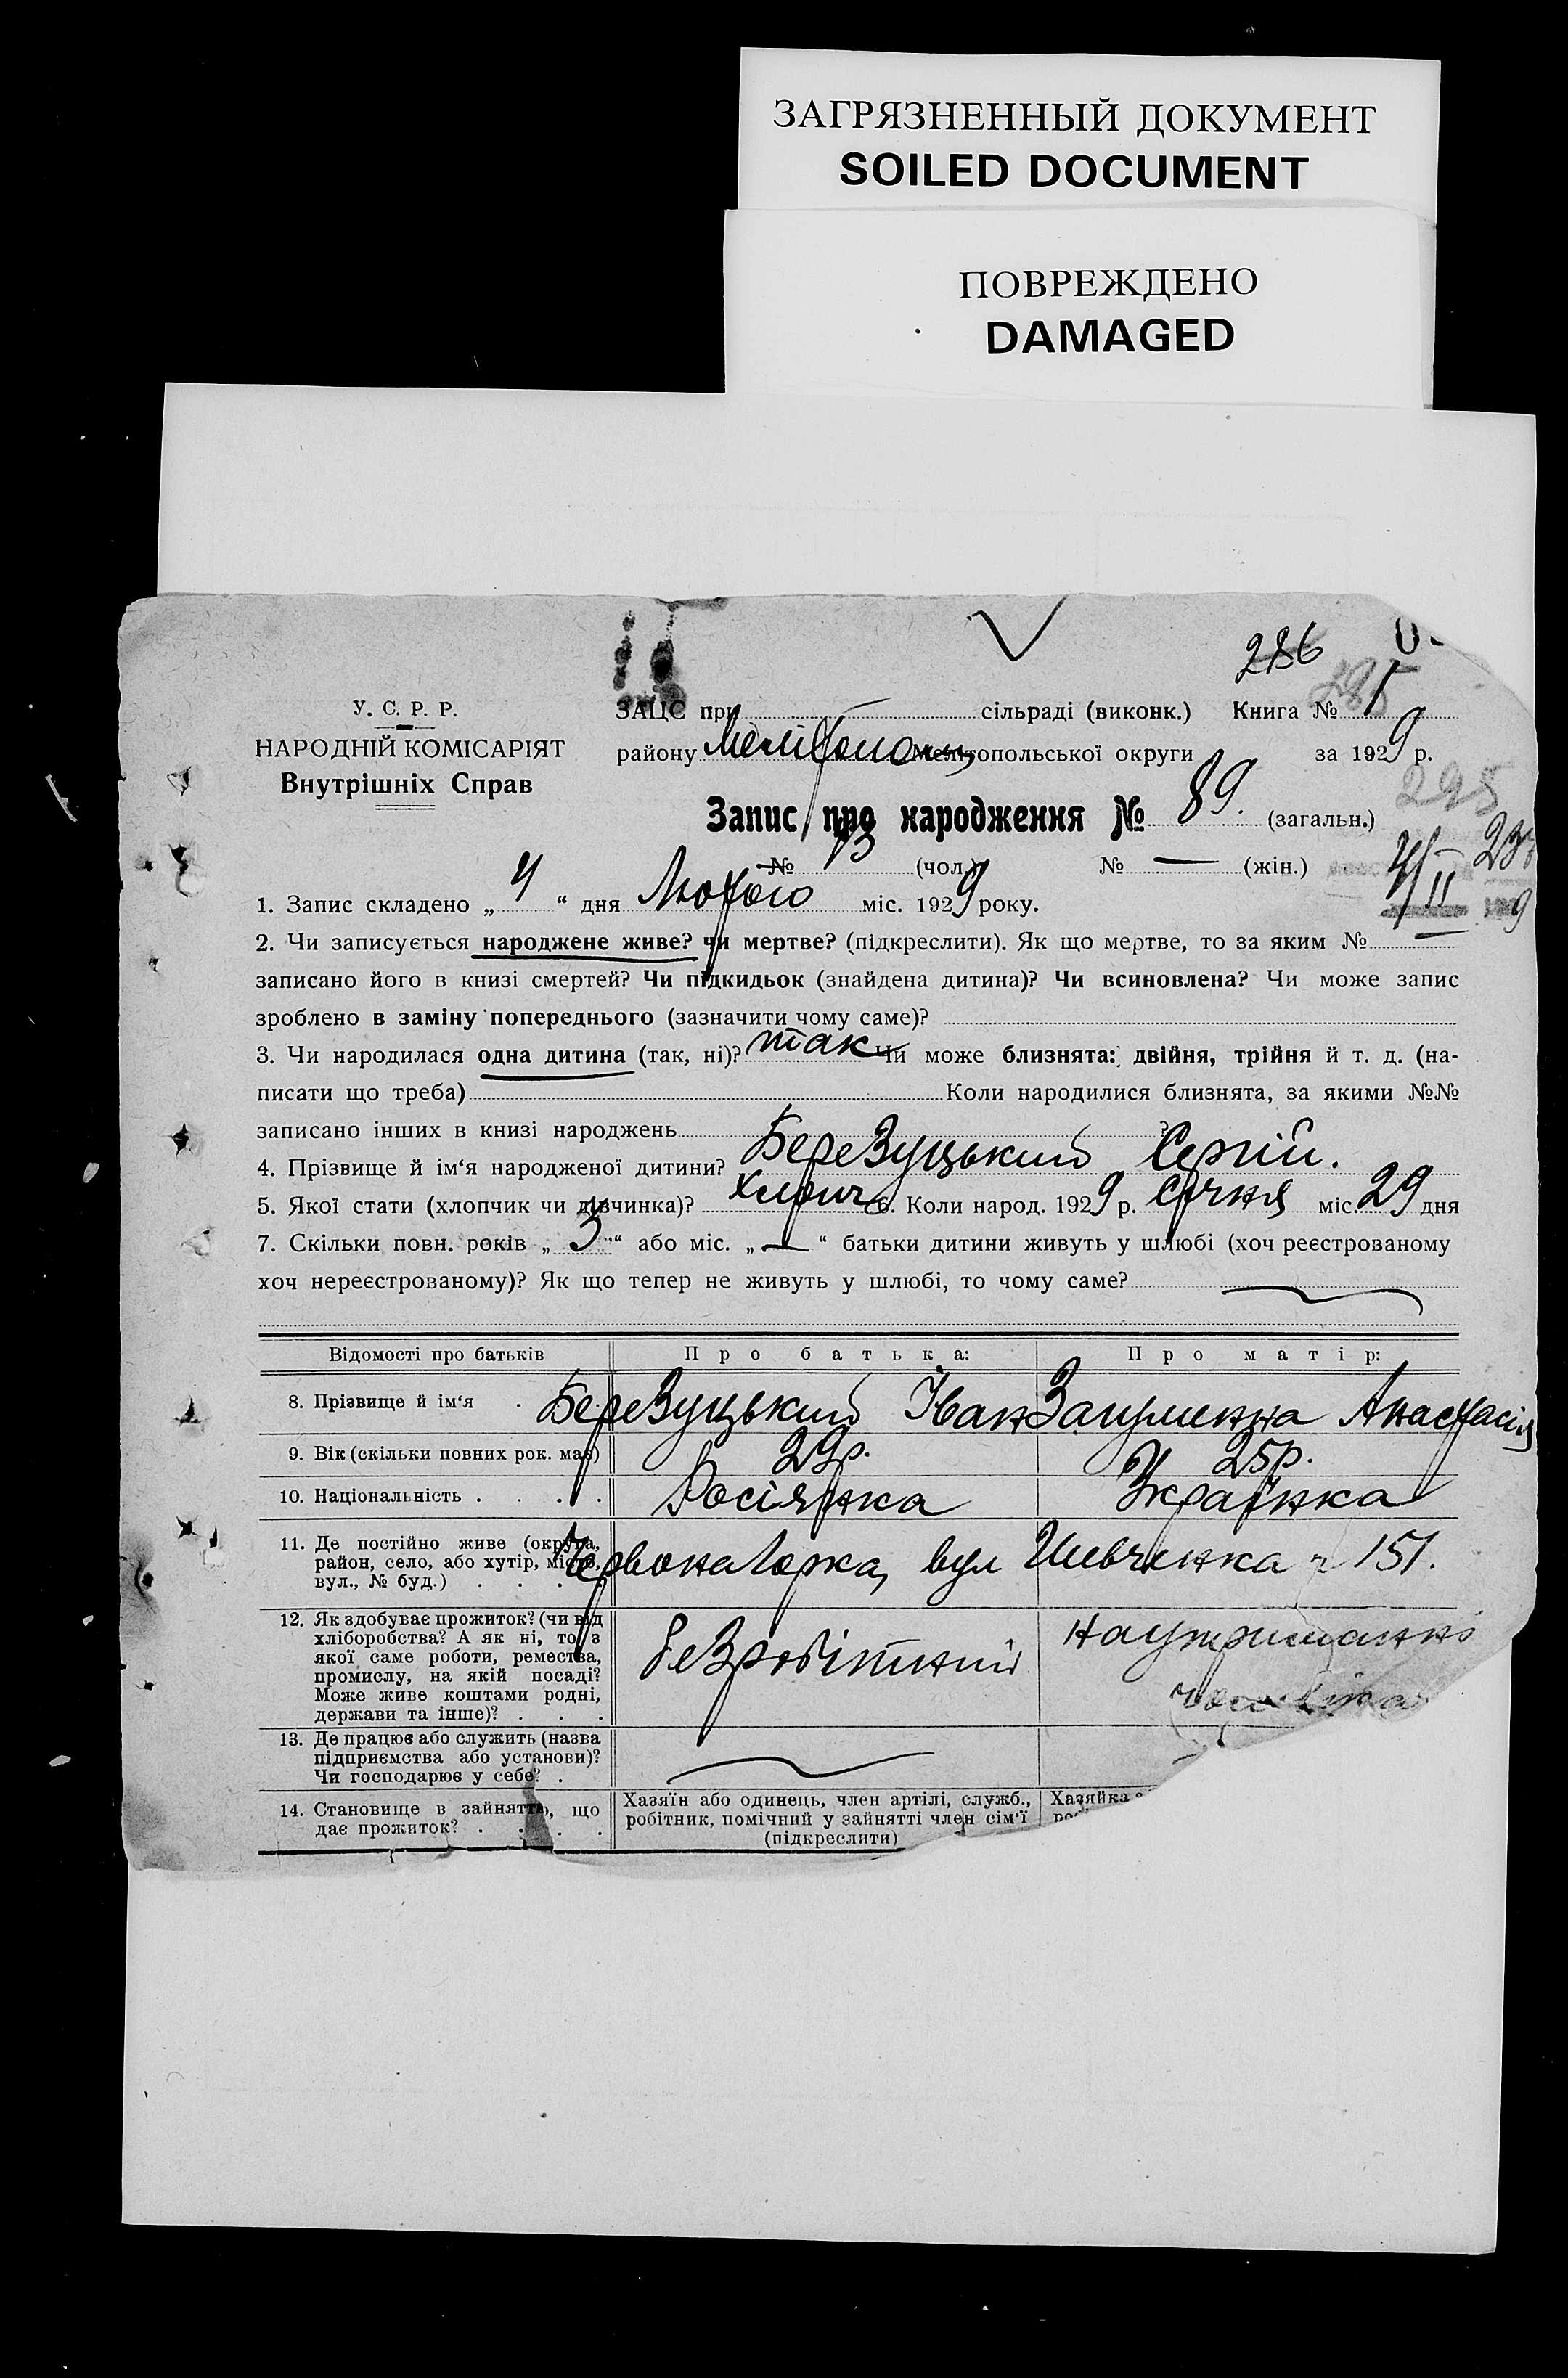 ЗАГРЯЗНЕННЫЙ ДОКУМЕНТ
SOILED DOCUMENT
ПОВРЕЖДЕНО
DAMAGED
286
У. С. Р. Р.
НАРОДНІЙ КОМІСАРІЯТ
Внутрішніх Справ
ЗАЦС при сільраді (виконк.) Книга № 1
району Мелітополь Мелітопольської округи за 1929 р.
295
Запис про народження № 89. (загальн.)
№ (чол.) № — (жін.)
4/II
1. Запис складено „ 4 “ дня Лютого міс. 1929 року.
2. Чи записується народжене живе? чи мертве? (підкреслити). Як що мертве, то за яким № —
записано його в книзі смертей? Чи підкидьок (знайдена дитина)? Чи всиновлена? Чи може запис
зроблено в заміну попереднього (зазначити чому саме)?
3. Чи народилася одна дитина (так, ні)? так Чи може близнята: двійня, трійня й т. д. (на-
писати що треба) Коли народилися близнята, за якими №№
записано інших в книзі народжень ?
4. Прізвище й ім‘я народженої дитини? Березуцький Сергій.
5. Якої стати (хлопчик чи дівчинка)? хлопч 6. Коли народ. 1929 р. січня міс. 29 дня
7. Скільки повн. років „ 3 “ або міс. „ — “ батьки дитини живуть у шлюбі (хоч реєстрованому
хоч нереєстрованому)? Як що тепер не живуть у шлюбі, то чому саме?
Відомості про батьків Про батька: Про матір:
8. Прізвище й ім‘я . Березуцький Іван Загуменна Анастасія
9. Вік (скільки повних рок. має) 29р. 25р.
10. Національність . . . . Росіянка Українка
11. Де постійно живе (округа,
район, село, або хутір, місто,
вул., № буд.) . . . Червона Горка, вул Шевченка 151.
12. Як здобуває прожиток? (чи від
хліборобства? А як ні, то з
якої саме роботи, ремества,
промислу, на якій посаді?
Може живе коштами родні,
держави та інше)? . . .
безробітний
на утриманні
13. Де працює або служить (назва
підприємства або установи)?
Чи господарює у себе? .
14. Становище в зайнятті, що
дає прожиток? . . . .
Хазяїн або одинець, член артілі, служб.,
робітник, помічний у зайнятті член сім‘ї
(підкреслити)
Хазяйка